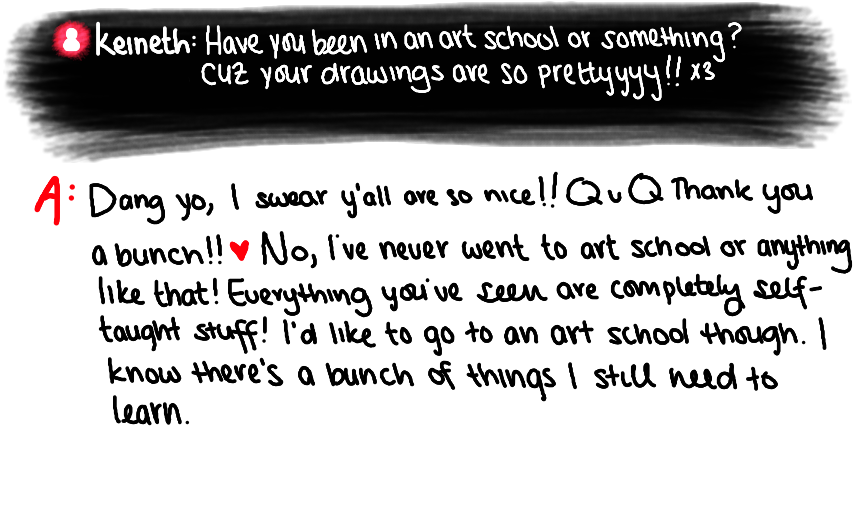 keineth: Have you been in an art school or something?
cuz your drawings are so prettyyyy!! x3
A: Dang yo, I swear y'all are so nice!! QuQ Thank you
a bunch!! ♥ No, I've never went to art school or anything
like that! Everything you've seen are completely self-
taught stuff! I'd like to go to an art school though. I
know there's a bunch of things I still need to
learn.